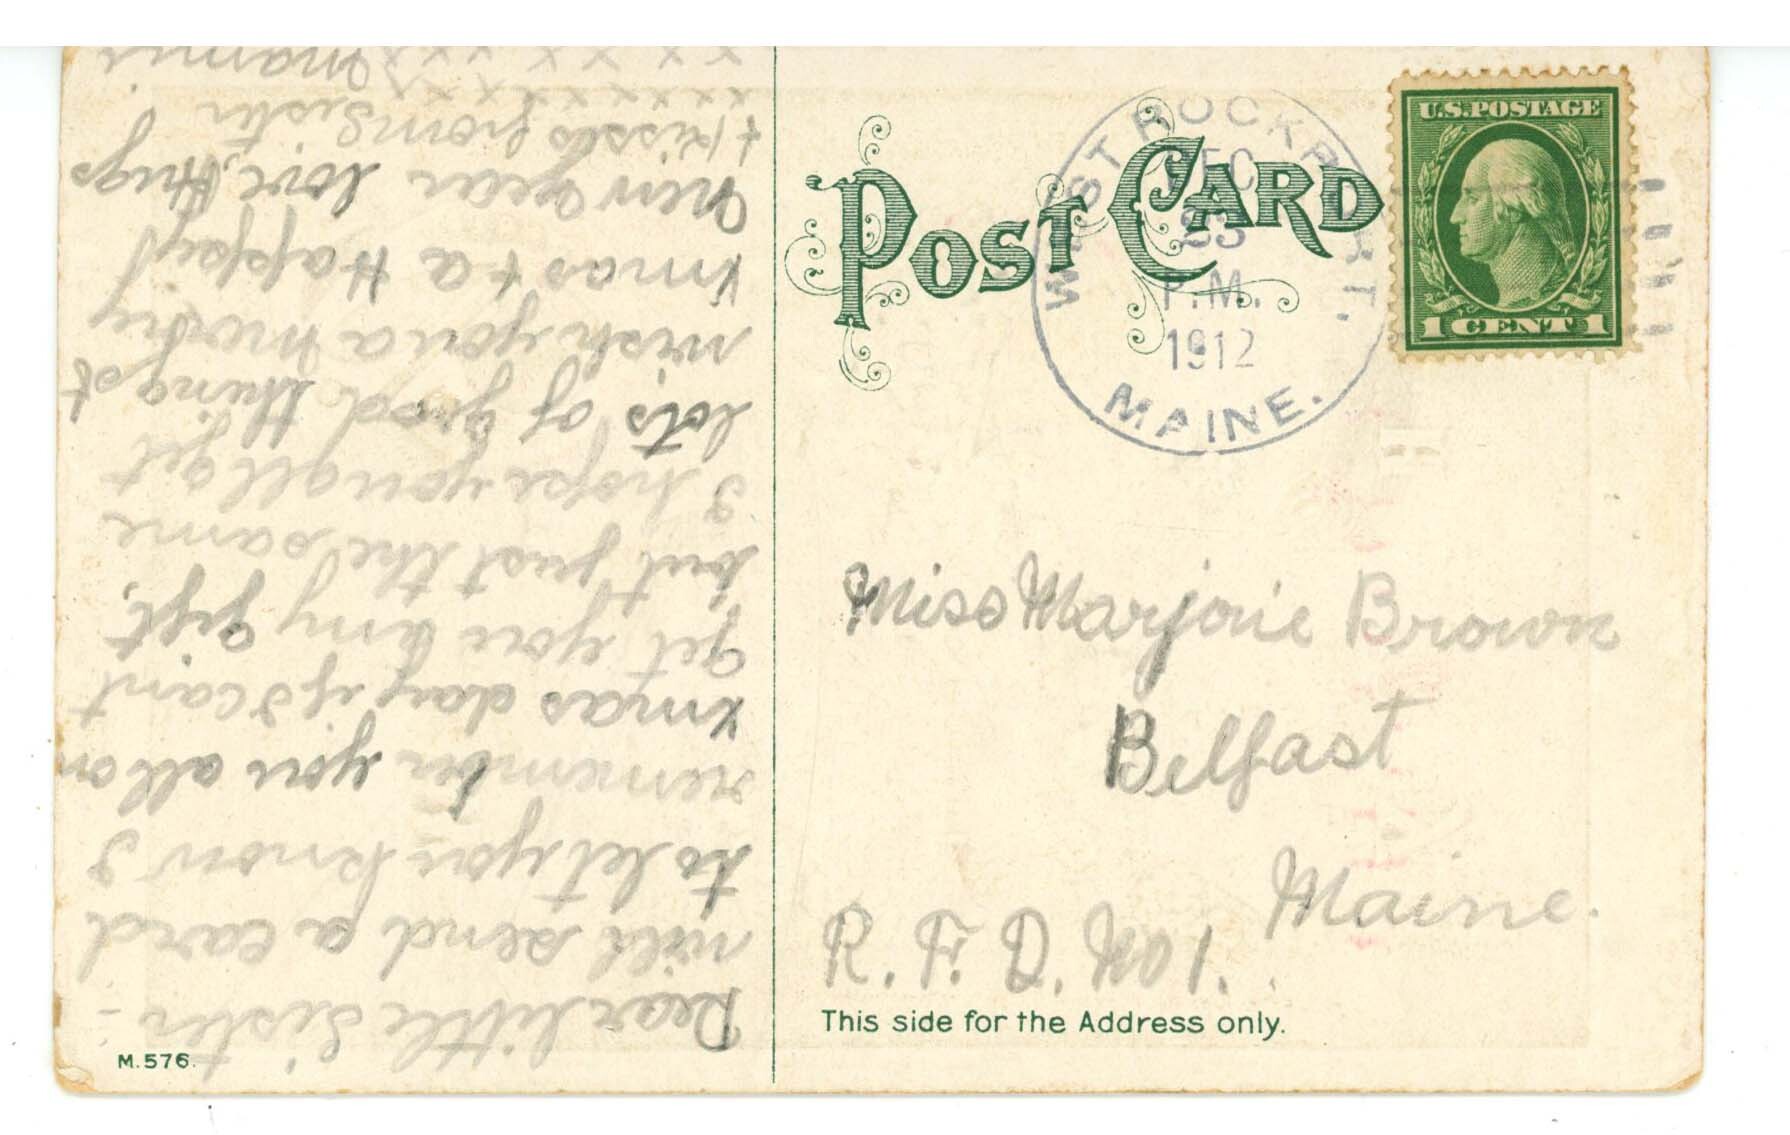 POST CARD
WEST ROCKPORT,
DEC
23
P.M.
1912
MAINE.
U.S. POSTAGE
1 CENT 1
Miss Marjorie Brown
Belfast
Maine.
R. F. D. No 1.
This side for the Address only.
M. 576.
Dear little Sister -
will send a card
to let you know I
remember you all on
xmas day if I cant
get you any gift,
but just the same
I hope you all get
lots of good things &
wish you a merry
Xmas & a Happy
new year love, Hugs
& Kisses from Sister
x x x x x x x x x Mamie
x x x x x x x x